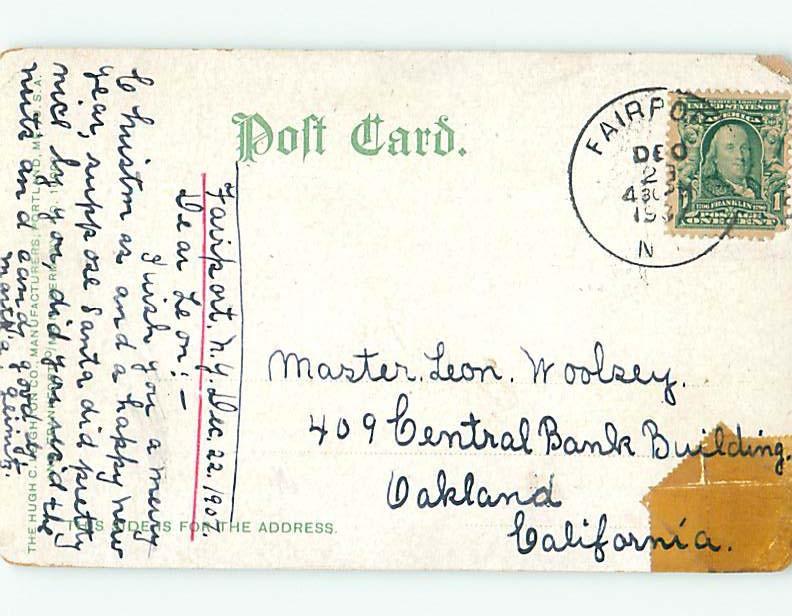 Post Card.
FAIRPO
DEC
2
430
19
N
SERIES 1902
UNITED STATES OF
AMERICA
1706 FRANKLIN 1790
POSTAGE
1 ONE CENT 1
Fairport, N.Y. Dec. 22. 1907.
Dear Leon: -
I wish you a merry
Christm as and a happy new
year, suppose Santa did pretty
nice by you, did you recid the
nuts and candy good by
Master. Leon. Woolsey.
409 Central Bank Building.
Oakland
California.
THIS SIDE IS FOR THE ADDRESS.
THE HUGH C. LEIGHTON CO., MANUFACTURERS, PORTLAND, ME., U.S.A.